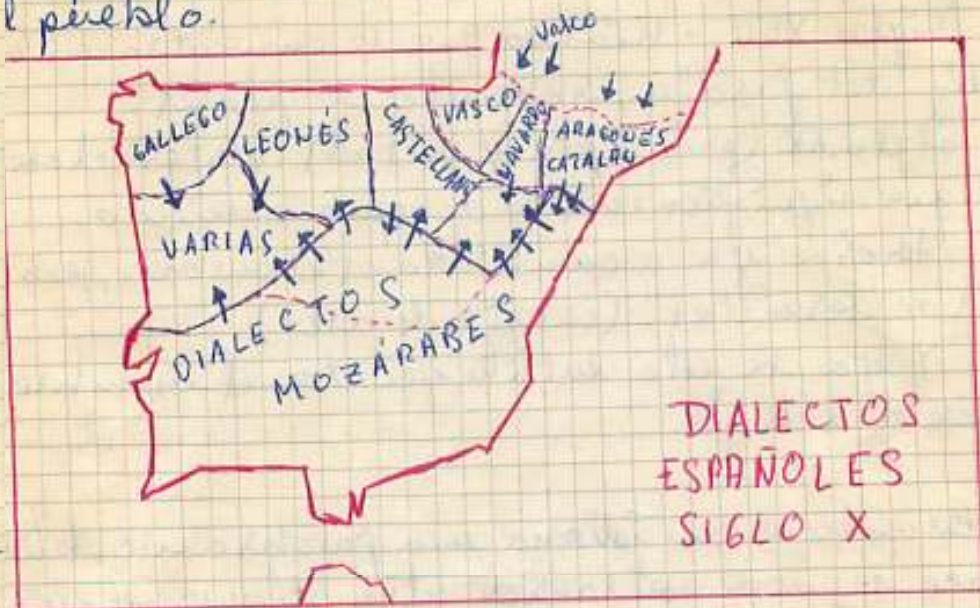 l pueblo.
Vasco
GALLEGO
LEONÉS
CASTELLANO
VASCO
NAVARRO
ARAGONÉS
CATALÁN
VARIAS
DIALECTOS
MOZÁRABES
DIALECTOS
ESPAÑOLES
SIGLO X